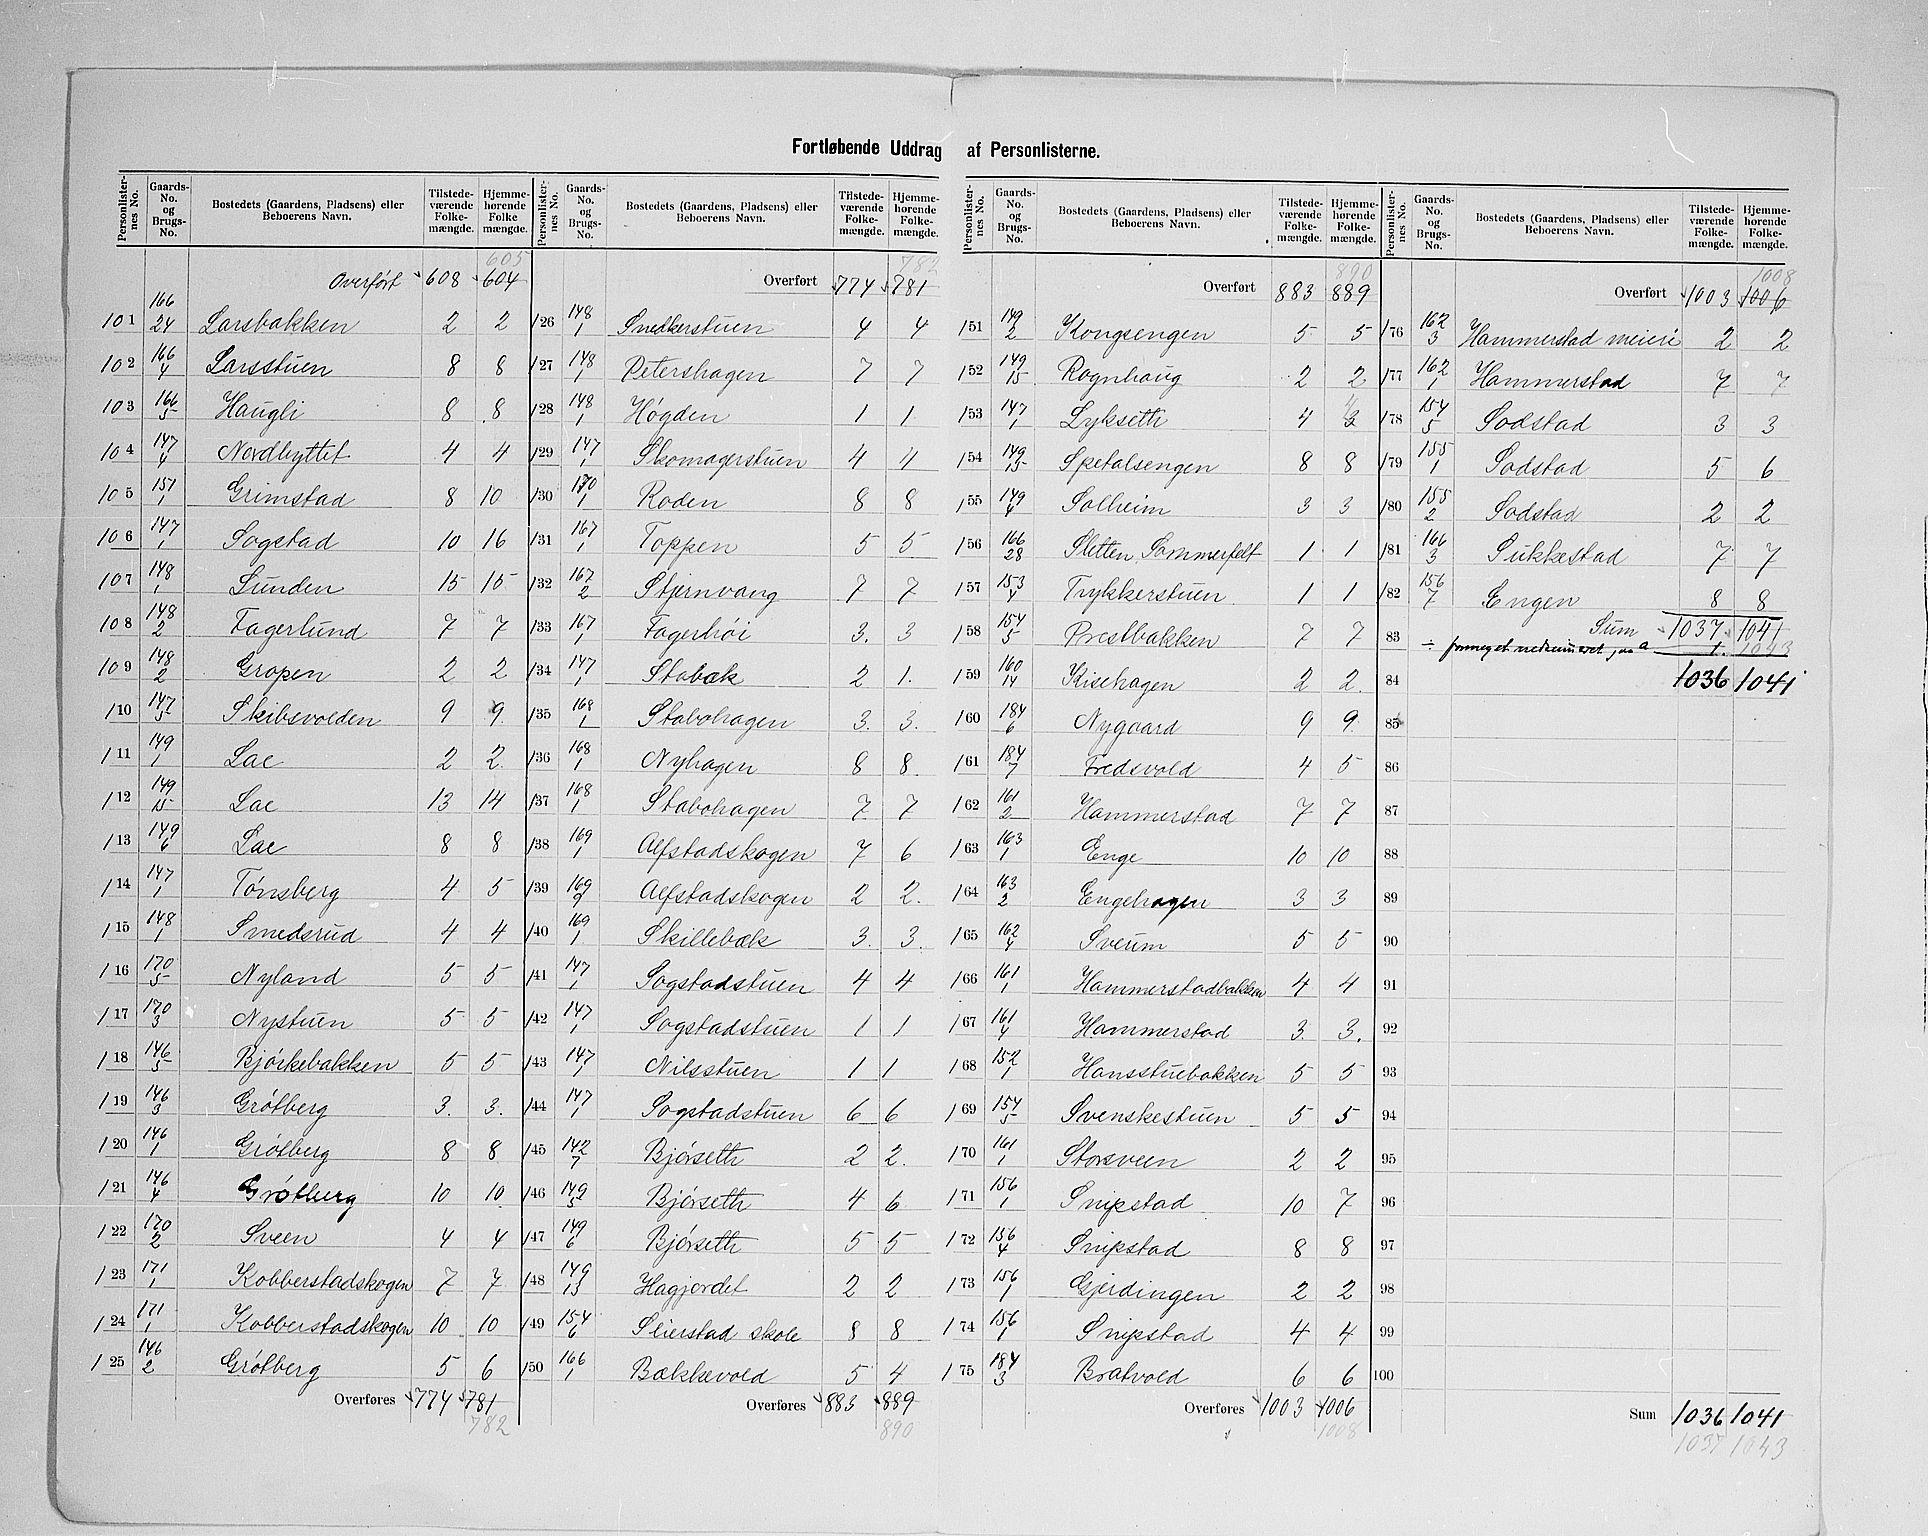 Fortløbende Uddrag af Personlisterne.
Personlister-nes No. | Gaards-No. og Brugs-No. | Bostedets (Gaardens, Pladsens) eller Beboerens Navn. | Tilstede-værende Folke-mængde. | Hjemme-hørende Folke mængde.
605
Overført 608 604
101 166/24 Larsbakken 2 2
102 166/4 Larsstuen 8 8
103 166/5 Haugli 8 8
104 147/4 Nordbyttet 4 4
105 157/1 Grimstad 8 10
106 147/1 Sogstad 10 16
107 148/1 Lunden 15 15
108 148/2 Fagerlund 7 7
109 148/2 Gropen 2 2
110 147/5 Skibsvolden 9 9
111 149/1 Lae 2 2
112 149/15 Lae 13 14
113 149/6 Lae 8 8
114 147/1 Tønsberg 4 5
115 148/1 Smedsrud 4 4
116 170/5 Nyland 5 5
117 170/3 Nystuen 5 5
118 146/5 Bjørkebakken 5 5
119 146/3 Grøtberg 3. 3.
120 146/1 Grøtberg 8 8
121 146/4 Grøtberg 10 10
122 170/2 Sveen 4 4
123 171/1 Kobberstadskogen 7 7
124 171/1 Kobberstadskogen 10 10
125 146/2 Grøtberg 5 6
Overføres 774 781
782
Personlister-nes No. | Gaards-No. og Brugs-No. | Bostedets (Gaardens, Pladsens) eller Beboerens Navn. | Tilstede-værende Folke-mængde. | Hjemme-hørende Folke-mængde.
782
Overført 774 781
126 148/1 Snedkerstuen 4 4
127 148/1 Petershagen 7 7
128 148/1 Høgden 1 1
129 147/1 Skomagerstuen 4 4
130 170/1 Roden 8 8
131 167/1 Toppen 5 5
132 167/2 Stjernvang 7 7
133 167/1 Fagerhøi 3. 3
134 147/1 Stabæk 2 1.
135 168/1 Stabohagen 3. 3.
136 168/1 Nyhagen 8 8.
137 168/1 Stabohagen 7 7
138 169/1 Alfstadskogen 7 6
139 169/2 Alfstadskogen 2 2.
140 169/1 Skillebæk 3. 3.
141 147/1 Sogstadstuen 4 4
142 147/1 Sogstadstuen 1 1
143 147/1 Nilsstuen 1 1
144 147/1 Sogstadstuen 6 6
145 142/7 Bjørseth 2 2.
146 149/5 Bjørseth 4 6
147 149/6 Bjørseth 5 5
148 149/13 Hagjordet 2 2
149 154/6 Slierstad skole 8 8
150 166/1 Bækkevold 5 4
Overføres 883 889
890
Personlister-nes No. | Gaards-No. og Brugs-No. | Bostedets (Gaardens, Pladsens) eller Beboerens Navn. | Tilstede-værende Folke-mængde. | Hjemme-hørende Folke-mængde.
890
Overført 883 889
151 149/2 Kongsengen 5 5
152 149/15 Rognhaug 2 2
153 147/1 Lykseth 4 3 4
154 149/15 Spetalsengen 8 8
155 149/4 Solheim 3 3
156 166/28 Sletten, Sommerfelt 1 1
157 153/4 Trykkerstuen 1 1
158 154/5 Prestbakken 7 7
159 160/14 Kisehagen 2 2.
160 184/6 Nygaard 9 9.
161 184/7 Fredsvold 4 5
162 161/2 Hammerstad 7 7
163 163/1 Enge 10 10
164 163/2 Engehagen 3 3
165 162/4 Sverum 5 5
166 161/1 Hammerstadbakken 4 4
167 161/4 Hammerstad 3. 3.
168 152/1 Hansstuebakken 5 5
169 154/5 Svenskestuen 5 5
170 161/1 Storsveen 2 2
171 156/1 Snipstad 10 7
172 156/4 Snipstad 8 8
173 156/1 Gjerdingen 2 2
174 156/1 Snipstad 4 4
175 184/3 Bratvold 6 6
Overføres 1003 1006
1008
Personlister-nes No. | Gaards-No. og Brugs-No. | Bostedets (Gaardens, Pladsens) eller Beboerens Navn. | Tilstede-værende Folke-mængde. | Hjemme-hørende Folke-mængde.
1008
Overført 1003 1006
176 162/3 Hammerstad meieri 2 2
177 162/1 Hammerstad 7 7
178 154/5 Sodstad 3 3
179 155/1 Sodstad 5 6
180 155/2 Sodstad 2 2
181 166/3 Sukkestad 7 7
182 156/7 Engen 8 8
Sum 1037 1041
83 ÷ 1. 1043
84 1036 1041
85
86
87
88
89
90
91
92
93
94
95
96
97
98
99
100
Sum 1036 1041
1037 1043